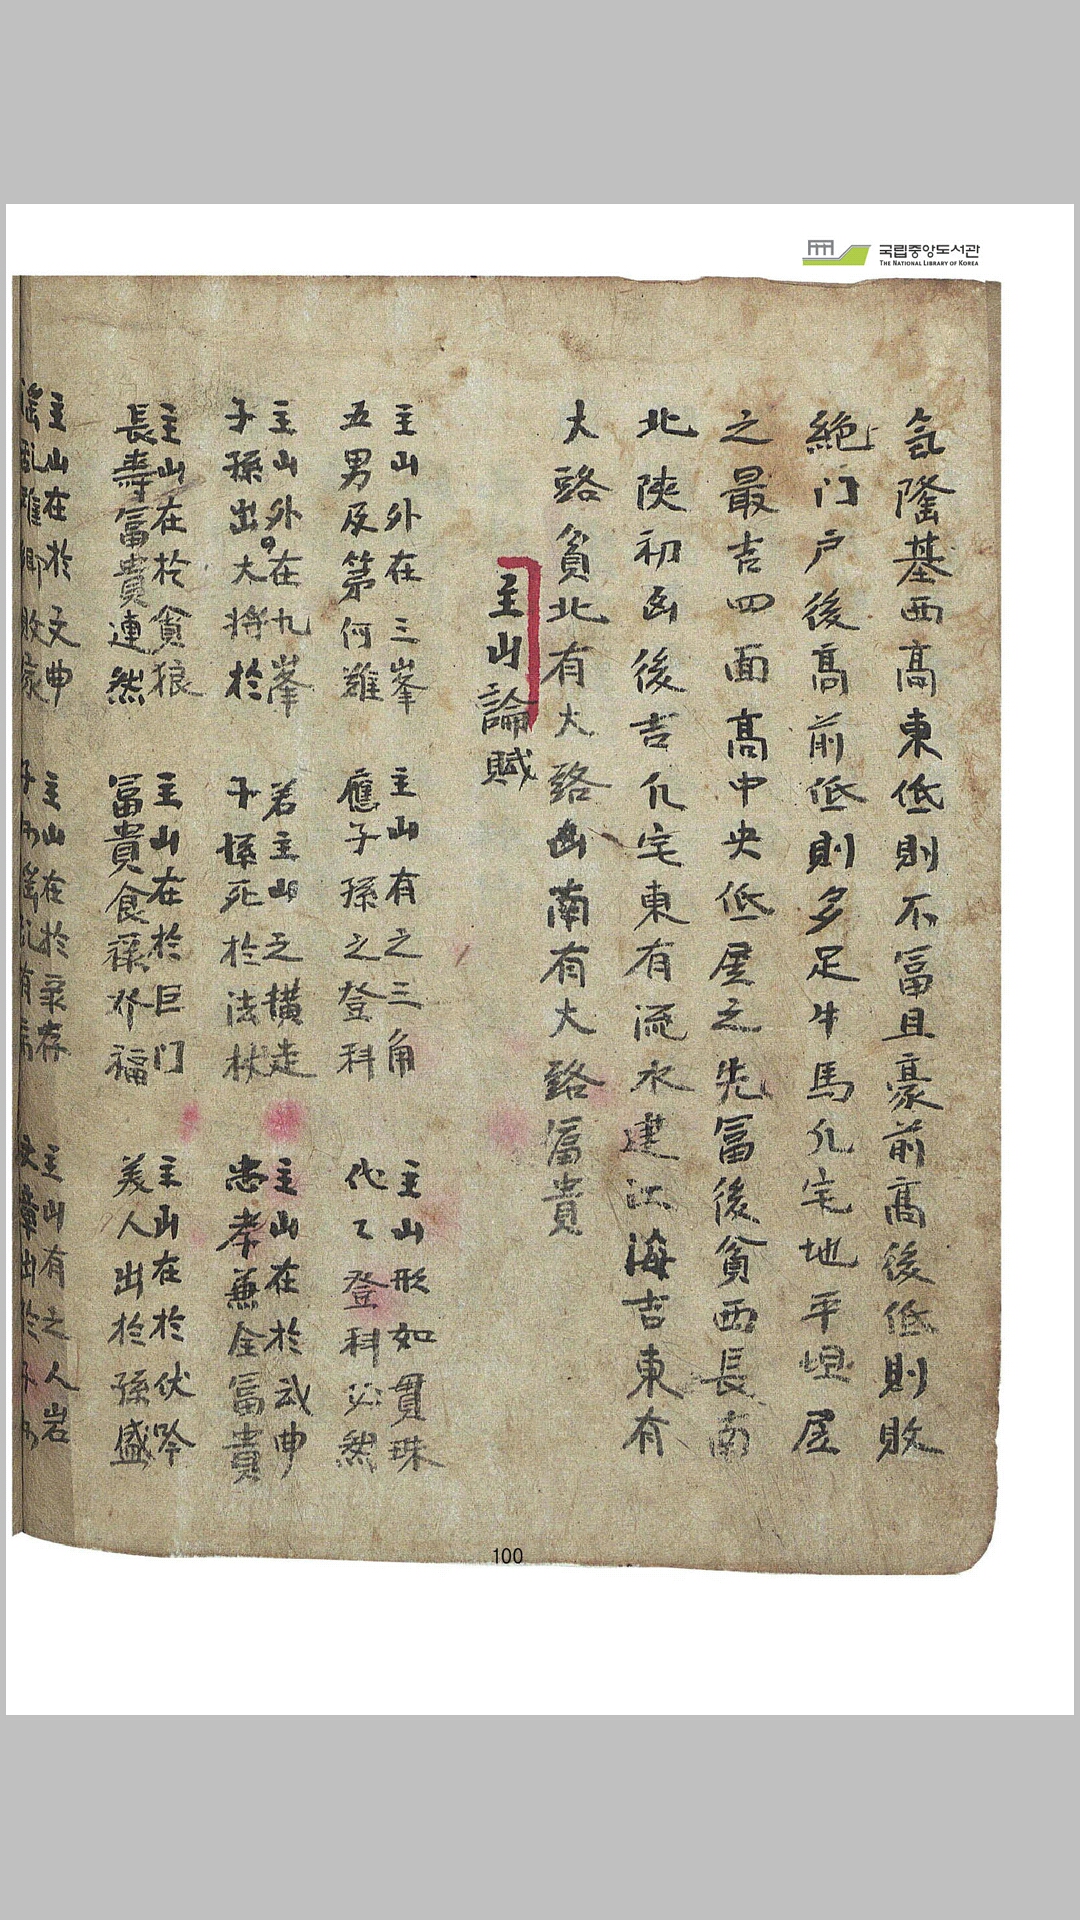 국립중앙도서관
THE NATIONAL LIBRARY OF KOREA
氣隆基西高東低則不冨且豪前高後低則敗
絶門戶後高前低則多足牛馬凢宅地平坦居
之最吉四面高中央低居之先冨後貧西長南
北陝初凶後吉凢宅東有流水建江海吉東有
大路貧北有大路凶南有大路冨貴
主山論賦
主山外在三峯
五男及第何難
主山有之三角
應子孫之登科
主山形如貫珠
代〻登科必然
主山外在九峯
子孫出大將於
若主山之横走
子孫死於法杖
主山在於武曲
忠孝兼全冨貴
主山在於貪狼
長壽冨貴連然
主山在於巨门
冨貴食祿介福
主山在於伏吟
美人出於孫盛
主山在於文曲
主山在於彔存
主山有之人岩
100